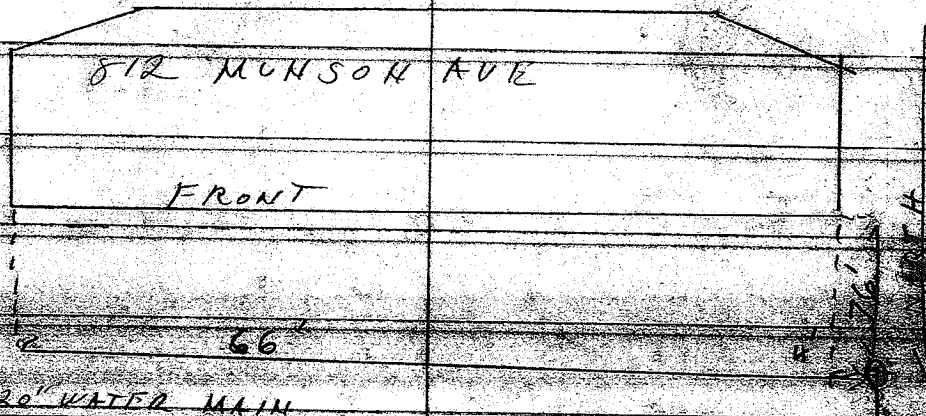 812 MUNSON AVE
FRONT
76'
66'
4'
20" WATER MAIN